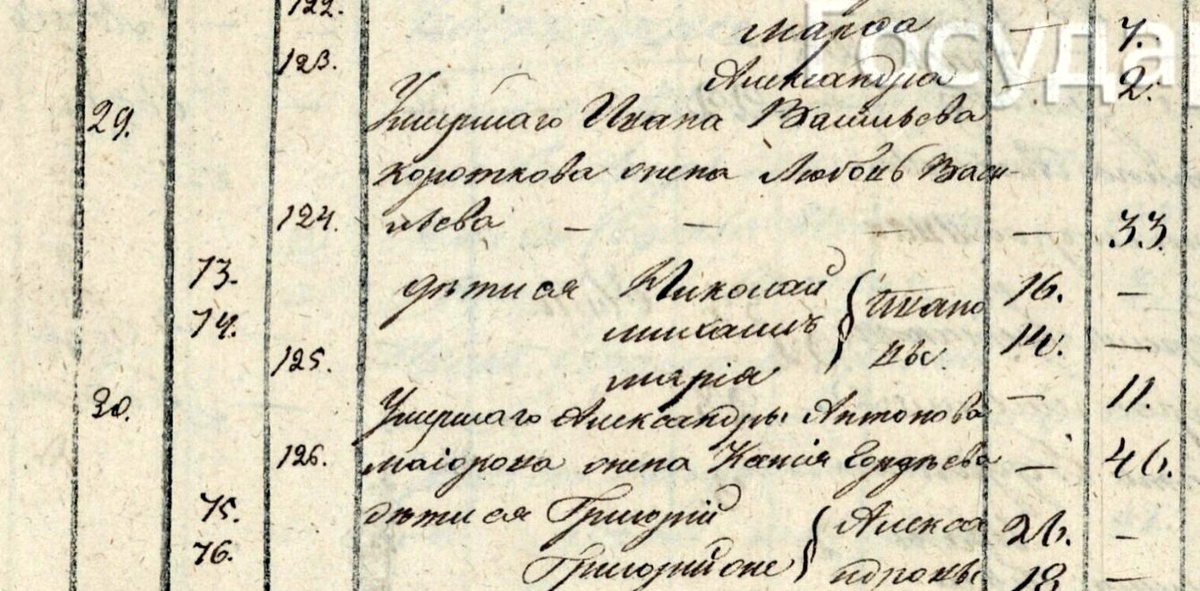 122. Марѳа — 7.
123. Александра — 2.
29. Умершаго Ивана Васильева
Короткова жена Любовь Васи-
124. льева — — — — 33.
73. дѣти ея Николай 16. —
74. Михаилъ { Ивано 14. —
вы.
125. Марія — 11.
30. Умершаго Александры Антонова
126. Маіорова жена Ксенія Гордѣева — 46.
75. дѣти ея Григорій { Алекса 26. —
76. Григорій же ндровы 18 —
Госуда